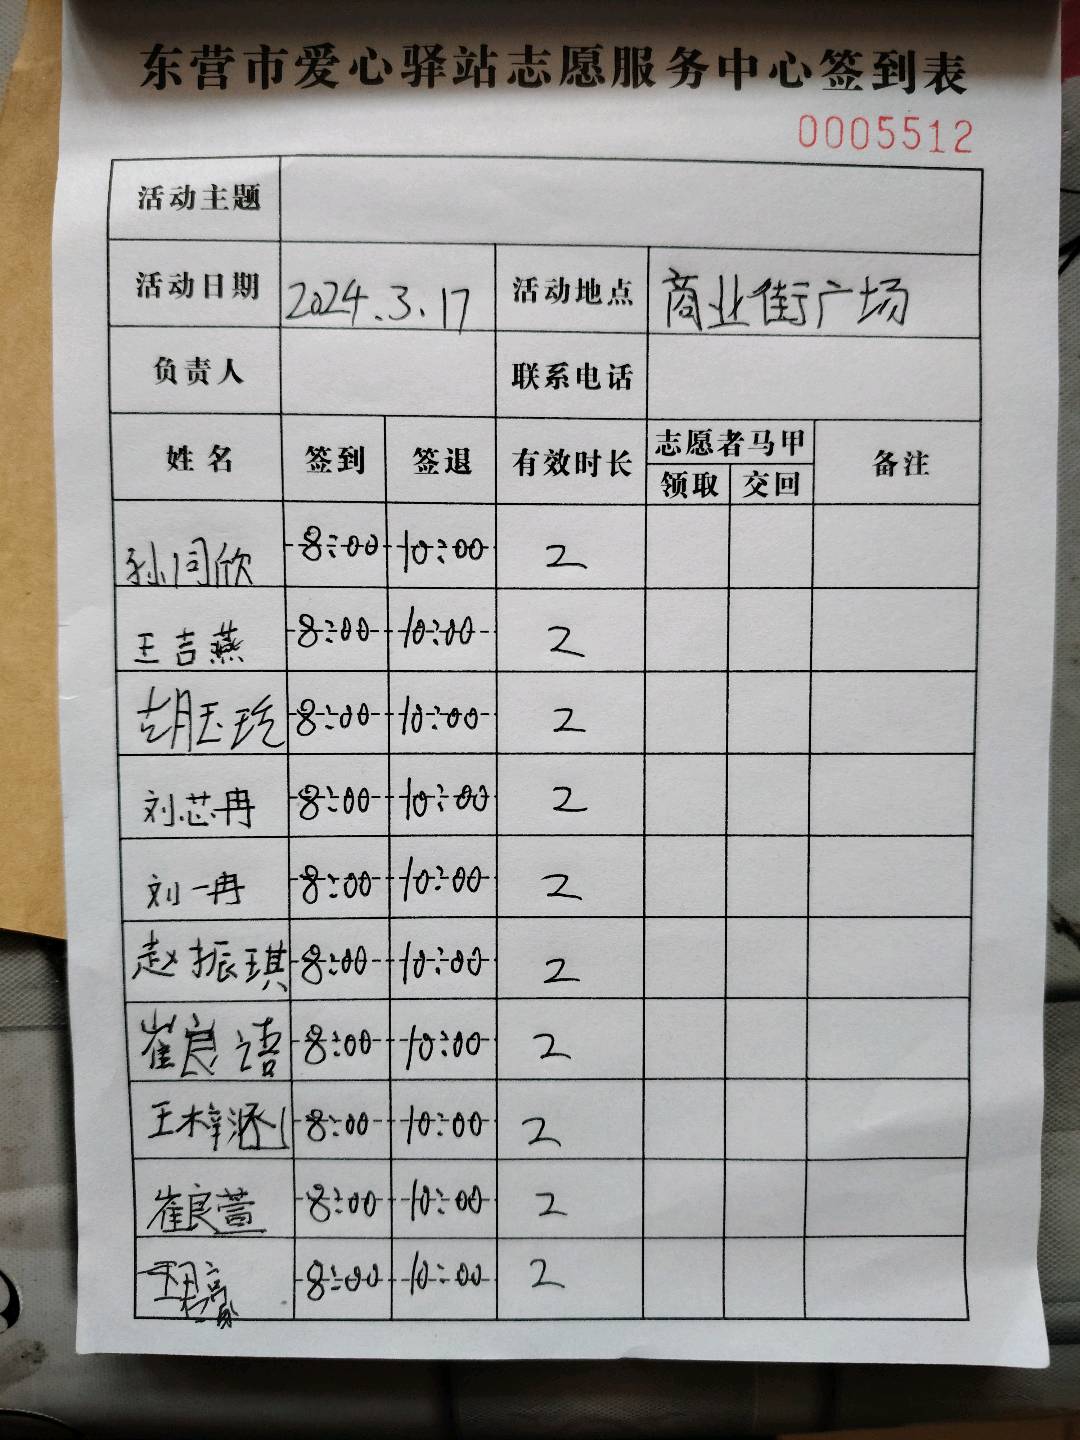 东营市爱心驿站志愿服务中心签到表
0005512
活动主题
活动日期 2024.3.17 活动地点 商业街广场
负责人 联系电话
姓名 签到 签退 有效时长 志愿者马甲 备注
领取 交回
孙同欣 8:00 10:00 2
王吉燕 8:00 10:00 2
胡玉玩 8:00 10:00 2
刘芯冉 8:00 10:00 2
刘一冉 8:00 10:00 2
赵振琪 8:00 10:00 2
崔良语 8:00 10:00 2
王梓涵 8:00 10:00 2
崔良萱 8:00 10:00 2
8:00 10:00 2